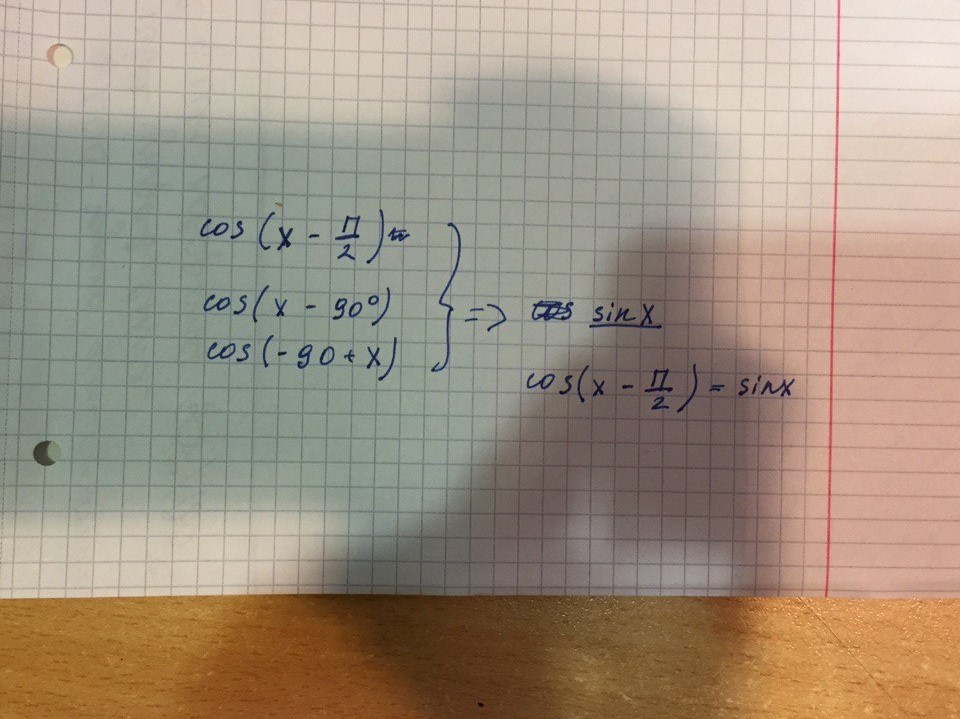 cos(x - П/2)
cos(x - 90°)
cos(-90 + x)
} => sinx
cos(x - П/2) = sinx